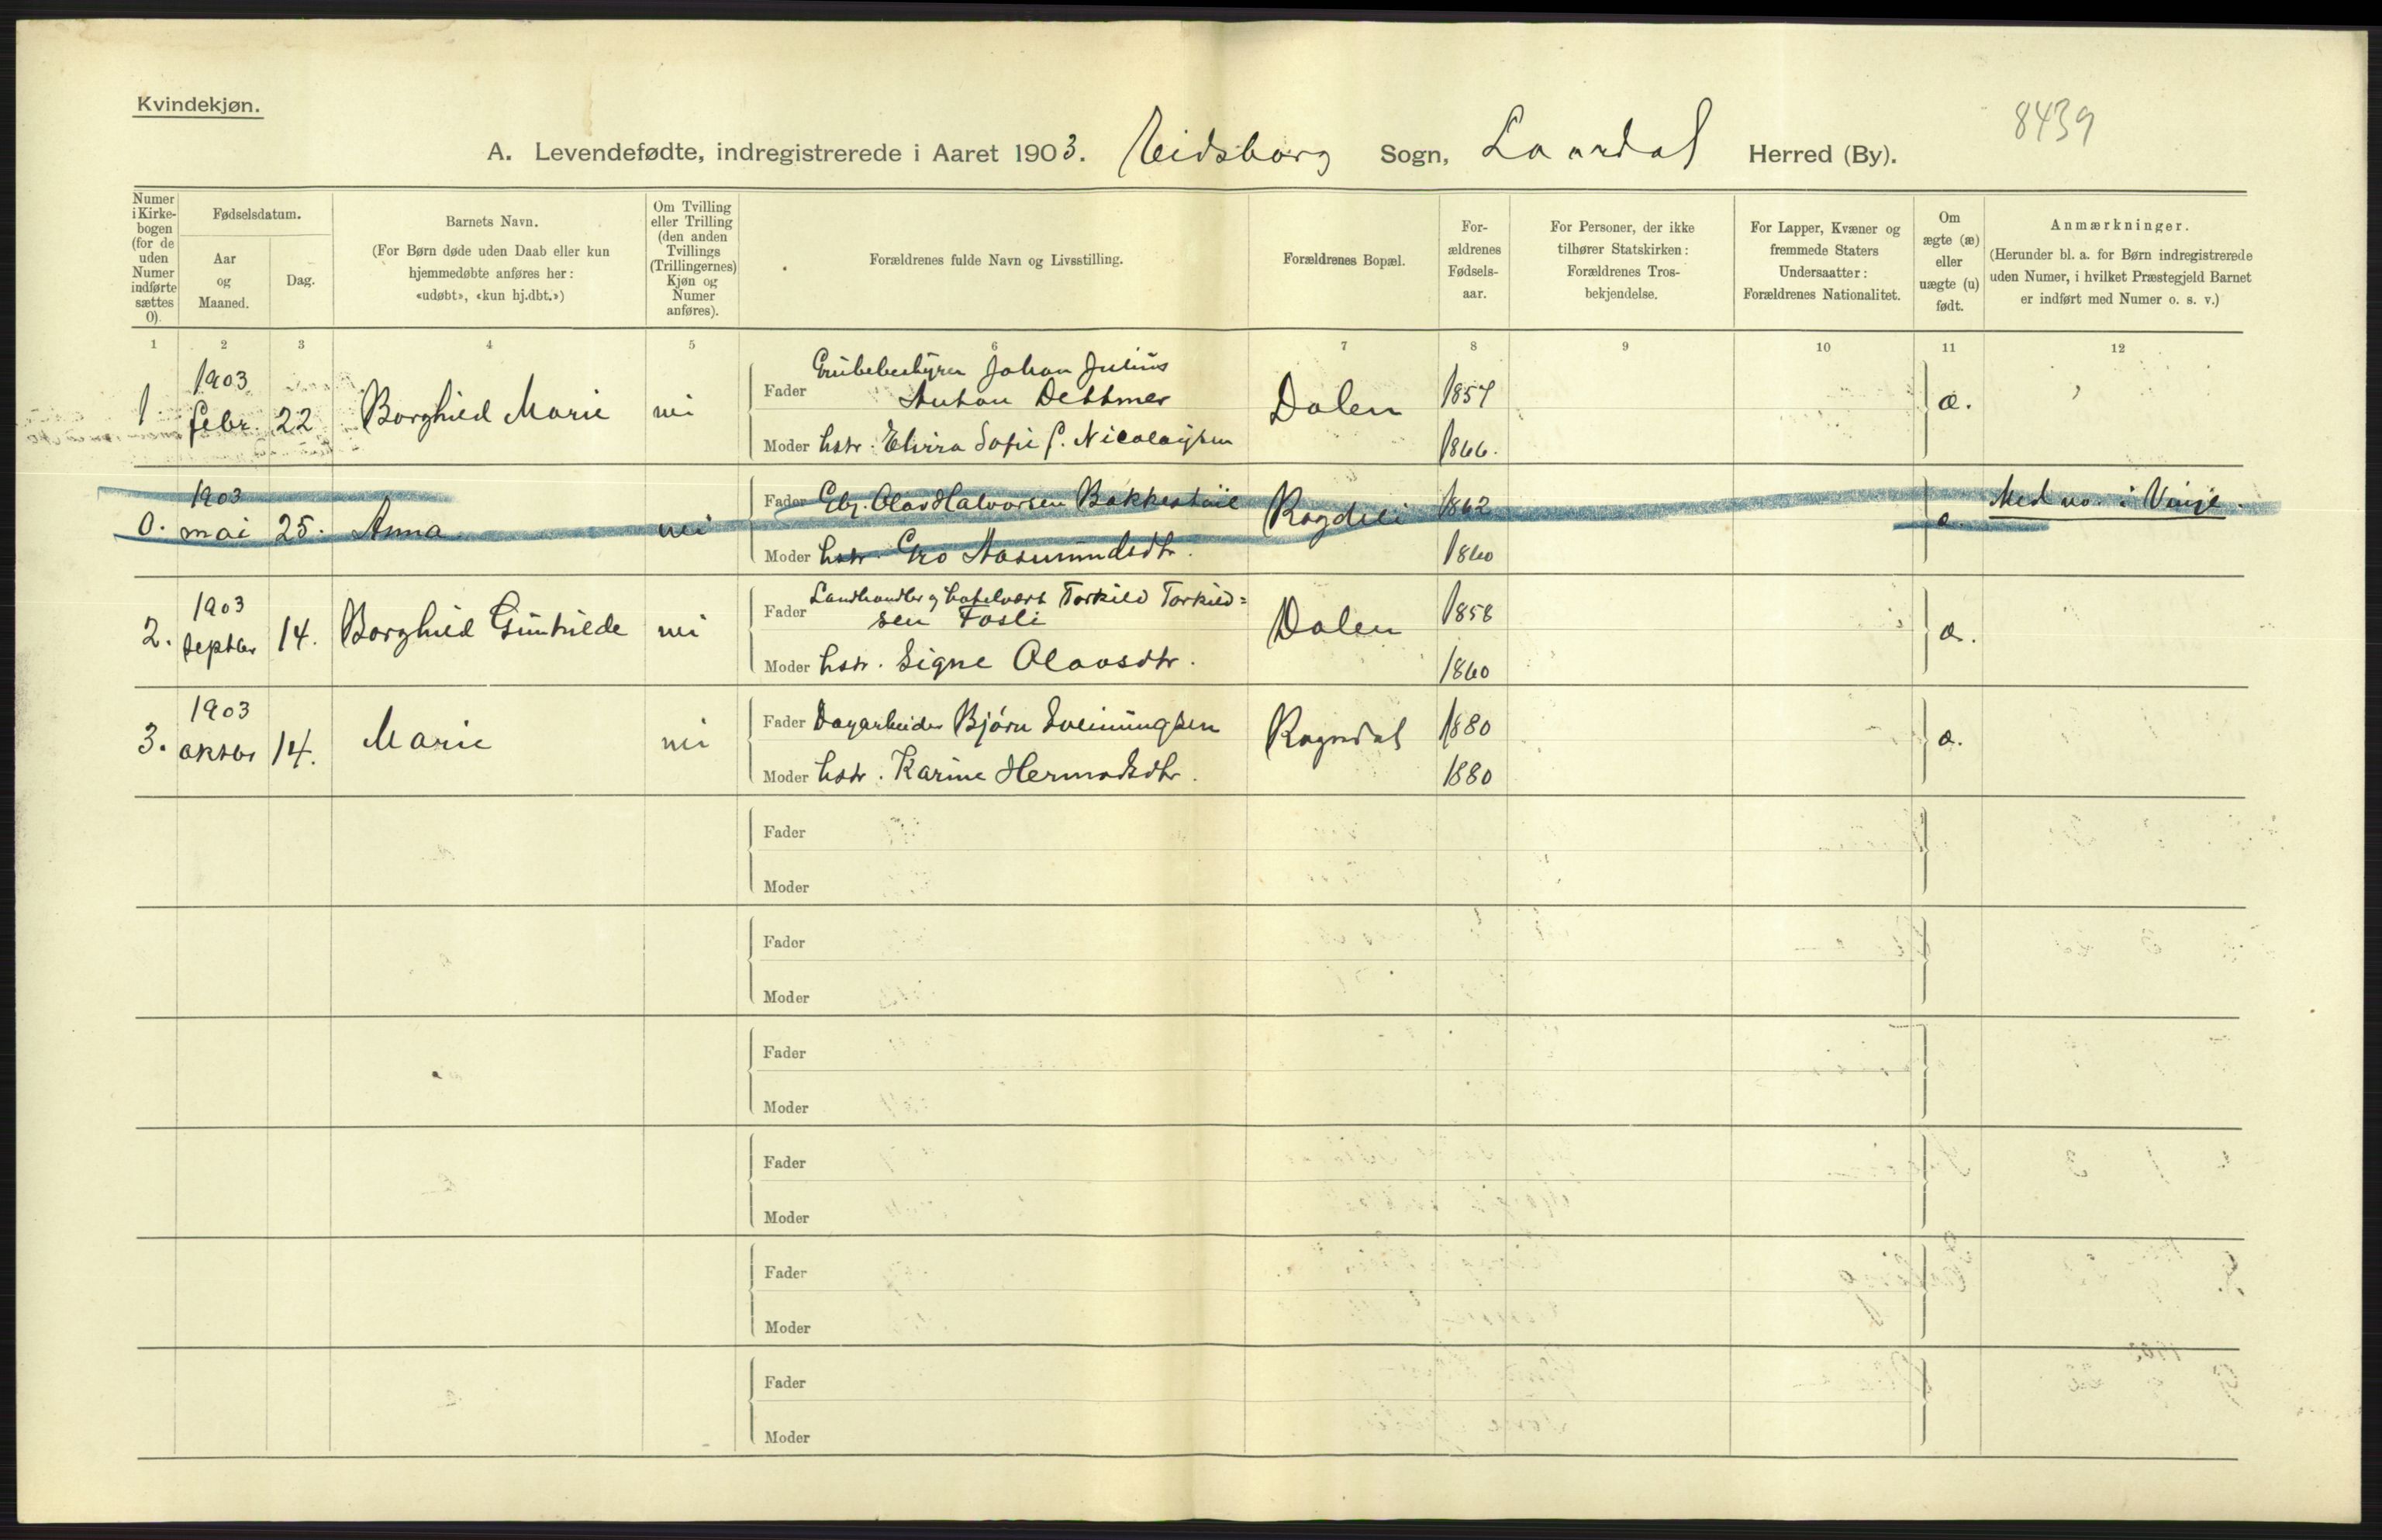 Kvindekjøn.
8439
A. Levendefødte, indregistrerede i Aaret 1903. Eidsborg Sogn, Laardal Herred (By).
Numer i Kirke-bogen (for de uden Numer indførte sættes 0).
Fødselsdatum.
Aar og Maaned.
Dag.
Barnets Navn.
(For Børn døde uden Daab eller kun
hjemmedøbte anføres her:
«udøbt», «kun hj.dbt.»)
Om Tvilling eller Trilling (den anden Tvillings (Trillingernes) Kjøn og Numer anføres).
Forældrenes fulde Navn og Livsstilling.
Forældrenes Bopæl.
For-ældrenes Fødsels-aar.
For Personer, der ikke
tilhører Statskirken:
Forældrenes Tros-
bekjendelse.
For Lapper, Kvæner og
fremmede Staters
Undersaatter:
Forældrenes Nationalitet.
Om ægte (æ) eller uægte (u) født.
Anmærkninger.
(Herunder bl. a. for Børn indregistrerede
uden Numer, i hvilket Præstegjeld Barnet
er indført med Numer o. s. v.)
1 2 3 4 5 6 7 8 9 10 11 12
1 1903 febr. 22 Borghild Marie nei
Fader Grubebestyrer Johan Julius
Anton Dettmer Dalen 1857 æ.
Moder hstr. Elvira Sofie f. Nicolaysen 1866.
0. 1903 mai 25. Anna nei
Fader Ebr. Olav Halvorsen Bakkestøil 1862 æ. Med no. i Vinje.
Moder hstr. Gro Aasmundsdtr. 1860
2. 1903 septbr 14. Borghild Gunhilde nei
Fader Landhandler og hotelvært Torkild Torkild=
sen Fosli Dalen 1858 æ.
Moder hstr. Signe Olavsdtr. 1860
3. 1903 oktbr 14. Marie nei
Fader Dagarbeider Bjørn Sveinungsen 1880 æ.
Moder hstr. Karine Hermodsdtr. 1880
Fader
Moder
Fader
Moder
Fader
Moder
Fader
Moder
Fader
Moder
Fader
Moder